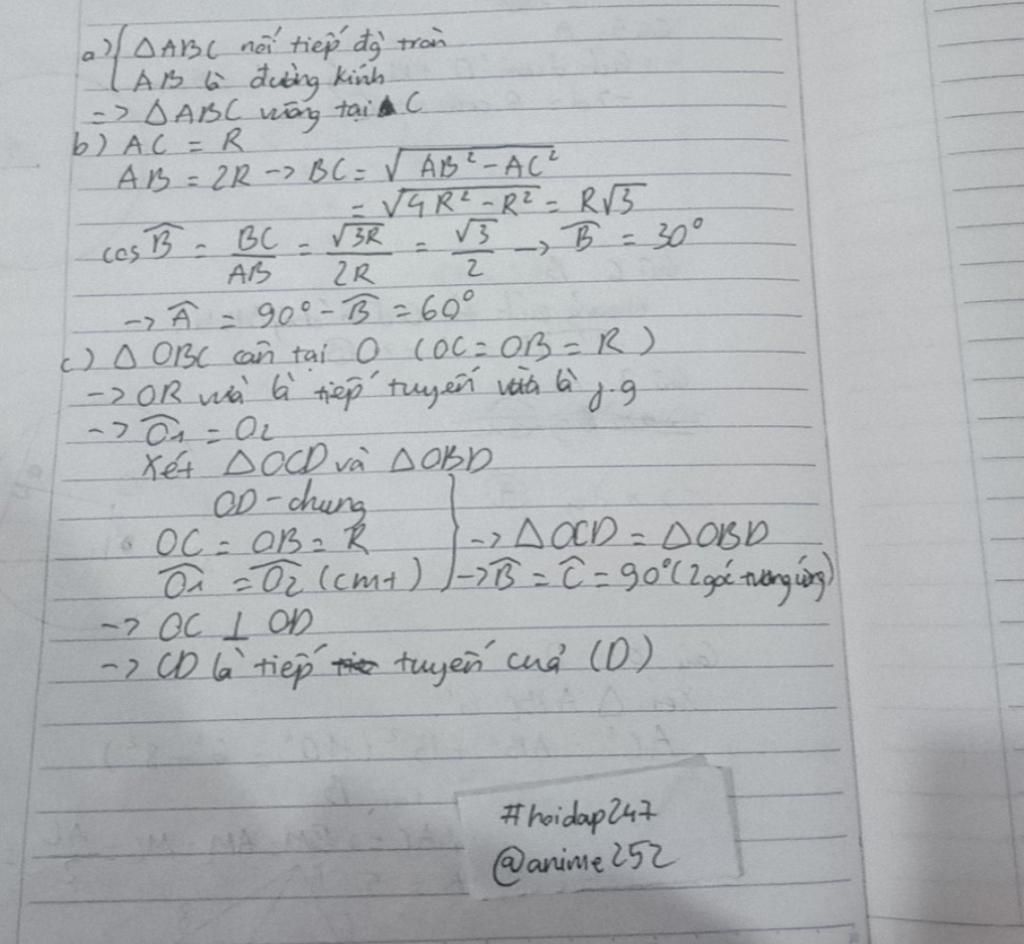 a) { △ABC nối tiếp đg tròn
AB là đường kính
=> △ABC vuông tại C
b) AC = R
AB = 2R -> BC = √(AB² - AC²)
= √(4R² - R²) = R√3
cos B̂ = BC/AB = √3R/2R = √3/2 -> B̂ = 30°
-> Â = 90° - B̂ = 60°
c) △OBC cân tại O (OC = OB = R)
-> OR vừa là tiếp tuyến vừa là j.g
-> Ô₁ = O₂
Xét △OCD và △OBD
OD - chung
OC = OB = R } -> △OCD = △OBD
Ô₁ = Ô₂ (cmt) -> B̂ = Ĉ = 90° (2 góc tương ứng)
-> OC ⊥ OD
-> CD là tiếp tuyến cuả (D)
#hoidap247
@anime252